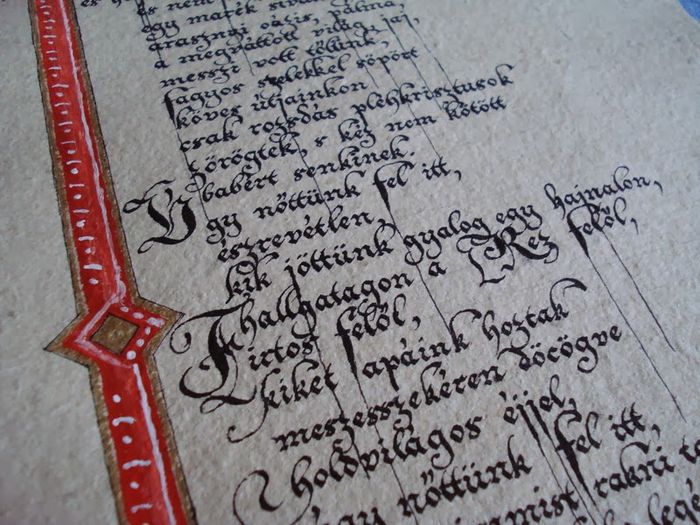 és nem
egy marék
arasznyi oázis, pálma,
a megváltott világ, jaj,
messzi volt tőlünk,
fagyos szelekkel söpört
köves útjainkon
csak rozsdás plehkrisztusok
zörögtek, s kéz nem kötött
babért senkinek.
Úgy nőttünk fel itt,
észrevétlen,
kik jöttünk gyalog egy hajnalon,
hallgatagon a Rez felől,
Firtos felől,
kiket apáink hoztak
meszesszekéren döcögve
holdvilágos éjjel,
úgy nőttünk fel itt,
rakni